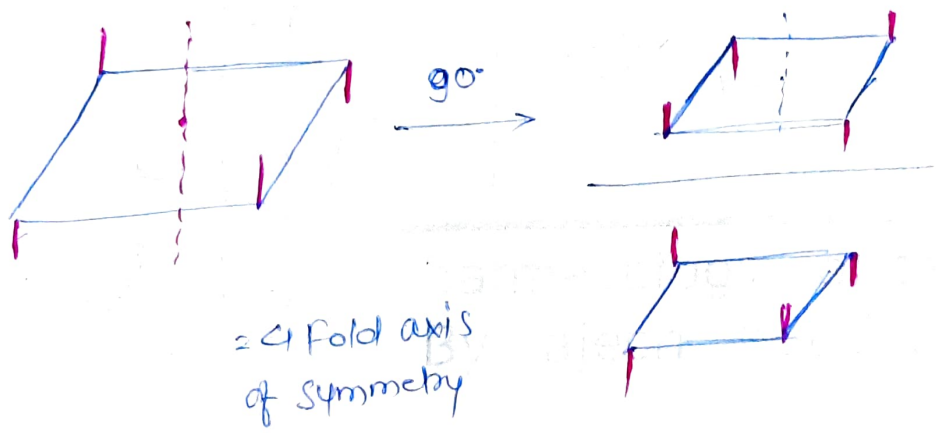 90°
= 4 Fold axis
of symmetry